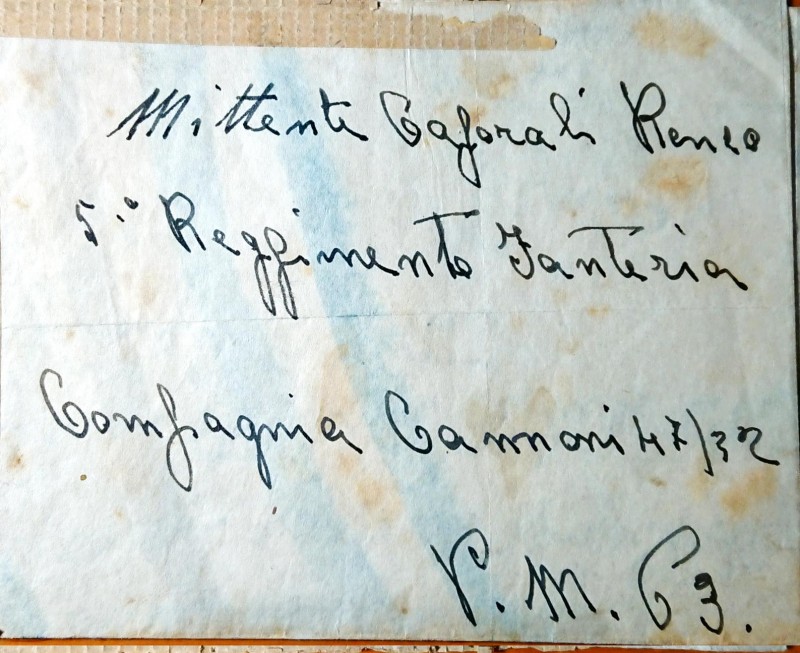 Mittente Caporali Renzo
5.º Reggimento Fanteria
Compagnia Cannoni 47/32
P. M. 63.